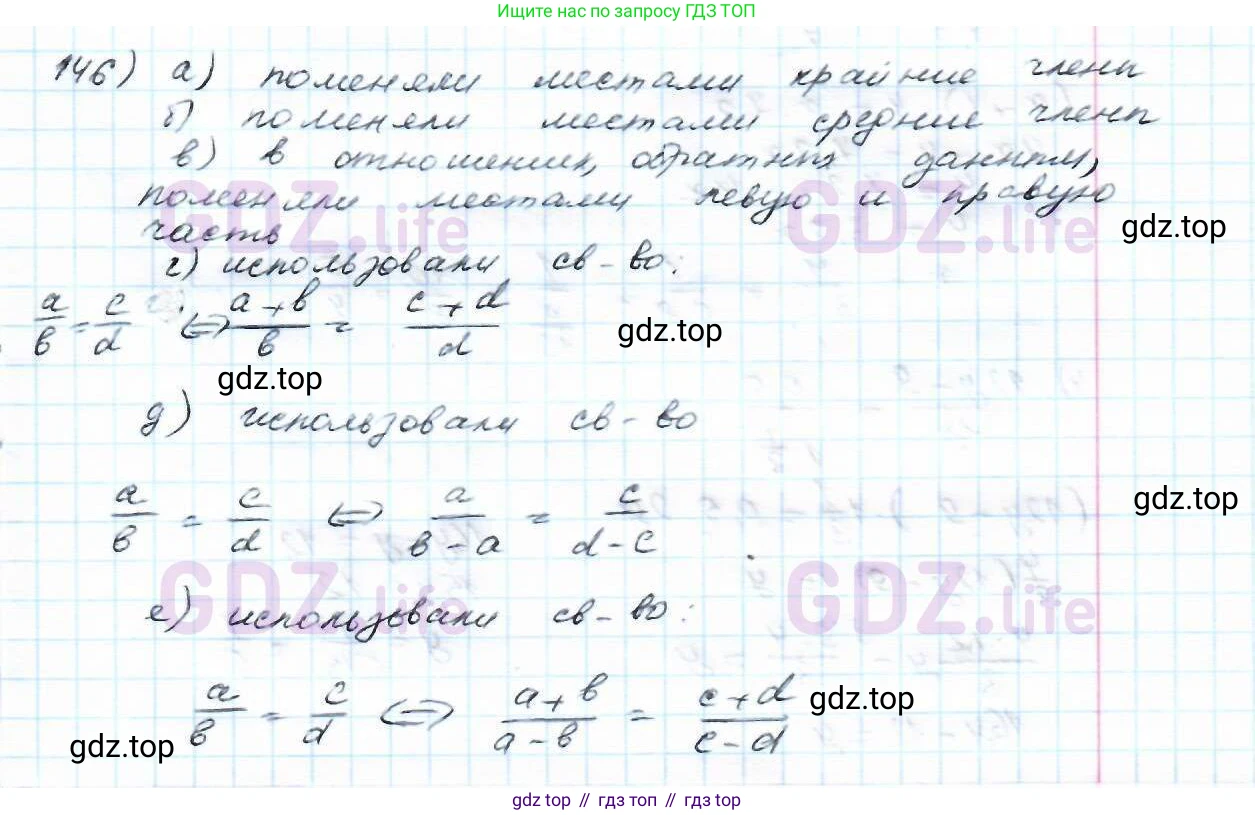 Ищите нас по запросу ГДЗ ТОП
146) а) поменяли местами крайние члены
б) поменяли местами средние члены
в) в отношениях, обратных данным,
поменяли местами левую и правую
часть
GDZ.life GDZ.life
gdz.top
г) использовали св-во:
a/b = c/d ⇔ (a+b)/b = (c+d)/d
gdz.top
gdz.top
д) использовали св-во
a/b = c/d ⇔ a/(b-a) = c/(d-c)
gdz.top
GDZ.life GDZ.life
е) использовали св-во:
a/b = c/d ⇔ (a+b)/(a-b) = (c+d)/(c-d)
gdz.top
gdz.top
gdz top // гдз топ // gdz top